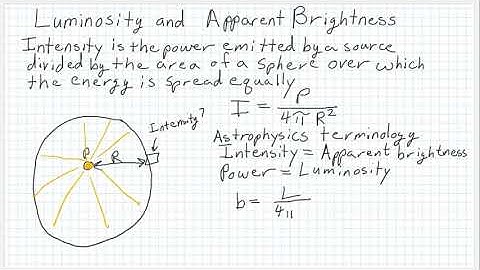 Luminosity and Apparent Brightness
Intensity is the power emitted by a source
divided by the area of a sphere over which
the energy is spread equally
I = P / 4π R²
Intensity?
P
R
Astrophysics terminology
Intensity = Apparent brightness
Power = Luminosity
b = L / 4π